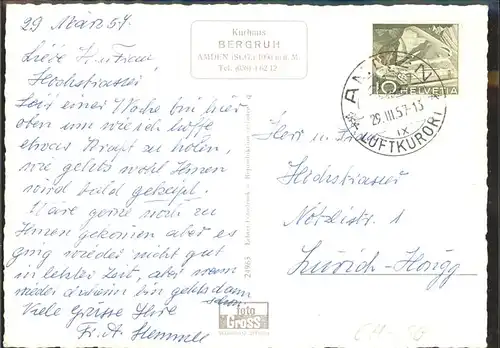 29 März 57.
Kurhaus
BERGRUH
AMDEN (St.G.) 1000 m ü. M.
Tel. (058) 4 62 12
Liebe H. u Frau
Hochstrasser
Seit einer Woche bin hier
oben um wie ich hoffe
etwas Kraft zu holen,
wie gehts wohl Ihnen
wird bald gekeipt.
Wäre gerne noch zu
Ihnen gekommen aber es
ging wieder nicht gut
in letzter Zeit, aber wenn
wieder daheim bin gehts dann
schon.
Viele Grüsse Ihre
Fr. A.
24963
foto
Gross
10 HELVETIA
AMDEN
29.III.57-15
IX
LUFTKURORT
Herr u. Frau
Hochstrasser
Nötzlistr. 1
Zürich-Höngg
CH-SG